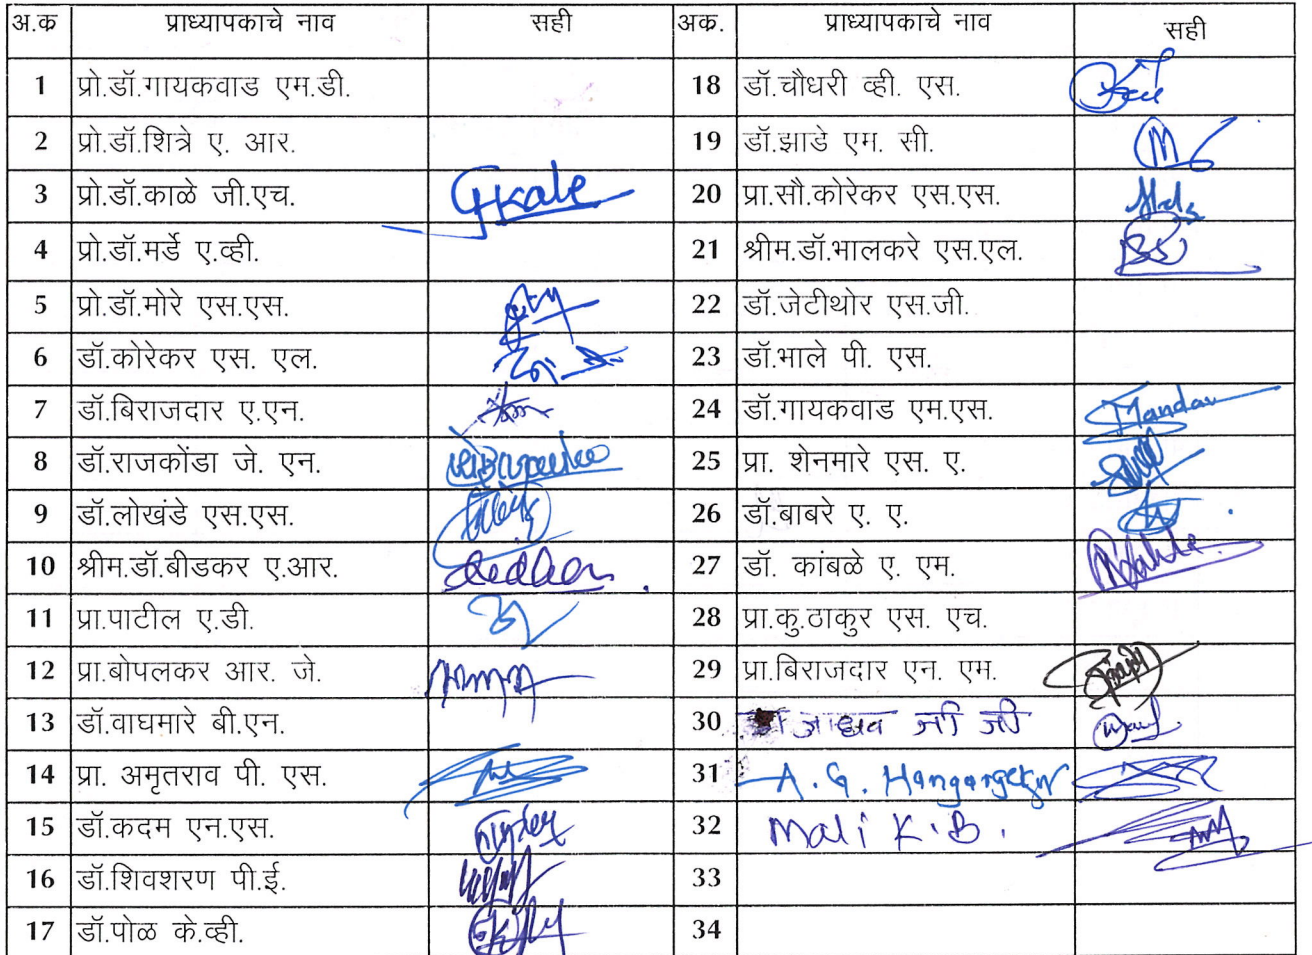 अ.क प्राध्यापकाचे नाव सही अक. प्राध्यापकाचे नाव सही
1 प्रो.डॉ.गायकवाड एम.डी. 18 डॉ.चौधरी व्ही. एस.
2 प्रो.डॉ.शित्रे ए. आर. 19 डॉ.झाडे एम. सी.
3 प्रो.डॉ.काळे जी.एच. GKale 20 प्रा.सौ.कोरेकर एस.एस.
4 प्रो.डॉ.मर्डे ए.व्ही. 21 श्रीम.डॉ.भालकरे एस.एल.
5 प्रो.डॉ.मोरे एस.एस. 22 डॉ.जेटीथोर एस.जी
6 डॉ.कोरेकर एस. एल. 23 डॉ.भाले पी. एस.
7 डॉ.बिराजदार ए.एन. 24 डॉ.गायकवाड एम.एस.
8 डॉ.राजकोंडा जे. एन. 25 प्रा. शेनमारे एस. ए.
9 डॉ.लोखंडे एस.एस. 26 डॉ.बाबरे ए. ए.
10 श्रीम.डॉ.बीडकर ए.आर. 27 डॉ. कांबळे ए. एम.
11 प्रा.पाटील ए.डी. 28 प्रा.कु.ठाकुर एस. एच.
12 प्रा.बोपलकर आर. जे. 29 प्रा.बिराजदार एन. एम.
13 डॉ.वाघमारे बी.एन. 30 जाधव जी जी
14 प्रा. अमृतराव पी. एस. 31 A. G. Hangargekar
15 डॉ.कदम एन.एस. 32 Mali K.B.
16 डॉ.शिवशरण पी.ई. 33
17 डॉ.पोळ के.व्ही. 34